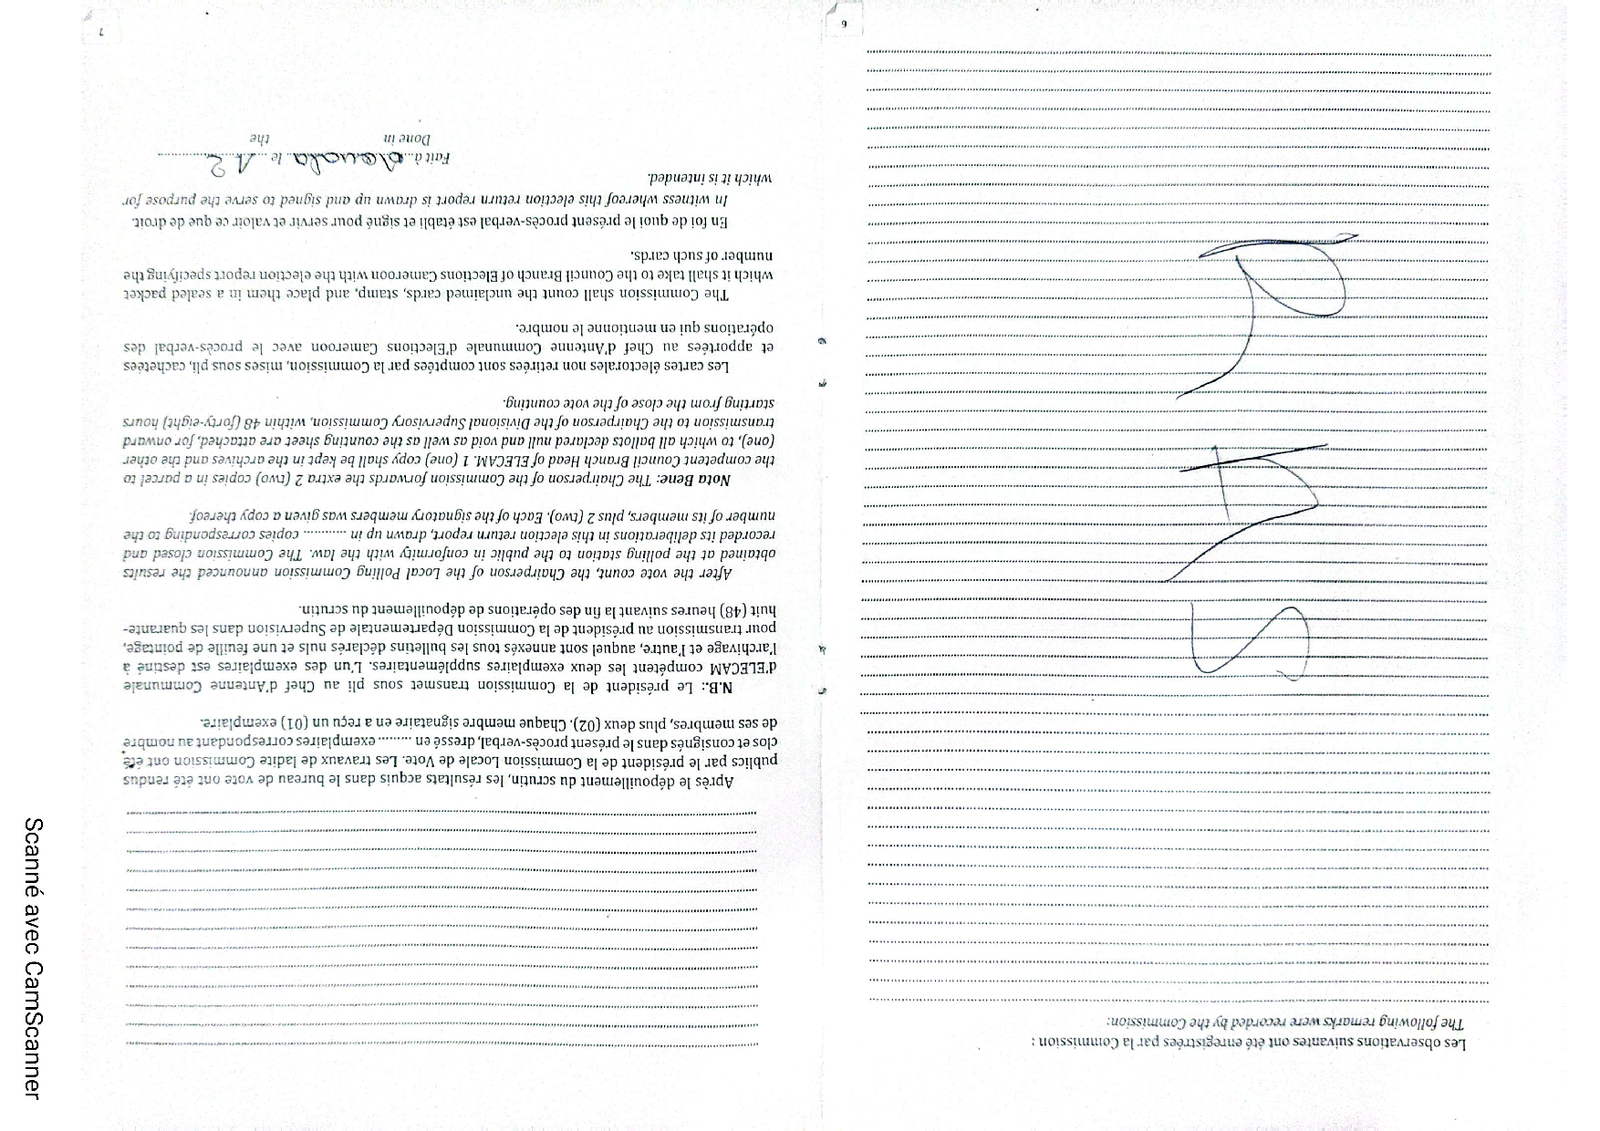 6
Les observations suivantes ont été enregistrées par la Commission :
The following remarks were recorded by the Commission:
RAS
7
Après le dépouillement du scrutin, les résultats acquis dans le bureau de vote ont été rendus
publics par le président de la Commission Locale de Vote. Les travaux de ladite Commission ont été
clos et consignés dans le présent procès-verbal, dressé en ......... exemplaires correspondant au nombre
de ses membres, plus deux (02). Chaque membre signataire en a reçu un (01) exemplaire.
N.B.: Le président de la Commission transmet sous pli au Chef d'Antenne Communale
d'ELECAM compétent les deux exemplaires supplémentaires. L'un des exemplaires est destiné à
l'archivage et l'autre, auquel sont annexés tous les bulletins déclarés nuls et une feuille de pointage,
pour transmission au président de la Commission Départementale de Supervision dans les quarante-
huit (48) heures suivant la fin des opérations de dépouillement du scrutin.
After the vote count, the Chairperson of the Local Polling Commission announced the results
obtained at the polling station to the public in conformity with the law. The Commission closed and
recorded its deliberations in this election return report, drawn up in ........... copies corresponding to the
number of its members, plus 2 (two). Each of the signatory members was given a copy thereof.
Nota Bene: The Chairperson of the Commission forwards the extra 2 (two) copies in a parcel to
the competent Council Branch Head of ELECAM. 1 (one) copy shall be kept in the archives and the other
(one), to which all ballots declared null and void as well as the counting sheet are attached, for onward
transmission to the Chairperson of the Divisional Supervisory Commission, within 48 (forty-eight) hours
starting from the close of the vote counting.
Les cartes électorales non retirées sont comptées par la Commission, mises sous pli, cachetées
et apportées au Chef d'Antenne Communale d'Elections Cameroon avec le procès-verbal des
opérations qui en mentionne le nombre.
The Commission shall count the unclaimed cards, stamp, and place them in a sealed packet
which it shall take to the Council Branch of Elections Cameroon with the election report specifying the
number of such cards.
En foi de quoi le présent procès-verbal est établi et signé pour servir et valoir ce que de droit.
In witness whereof this election return report is drawn up and signed to serve the purpose for
which it is intended.
Fait à Douala le 12
Done in the
Scanné avec CamScanner